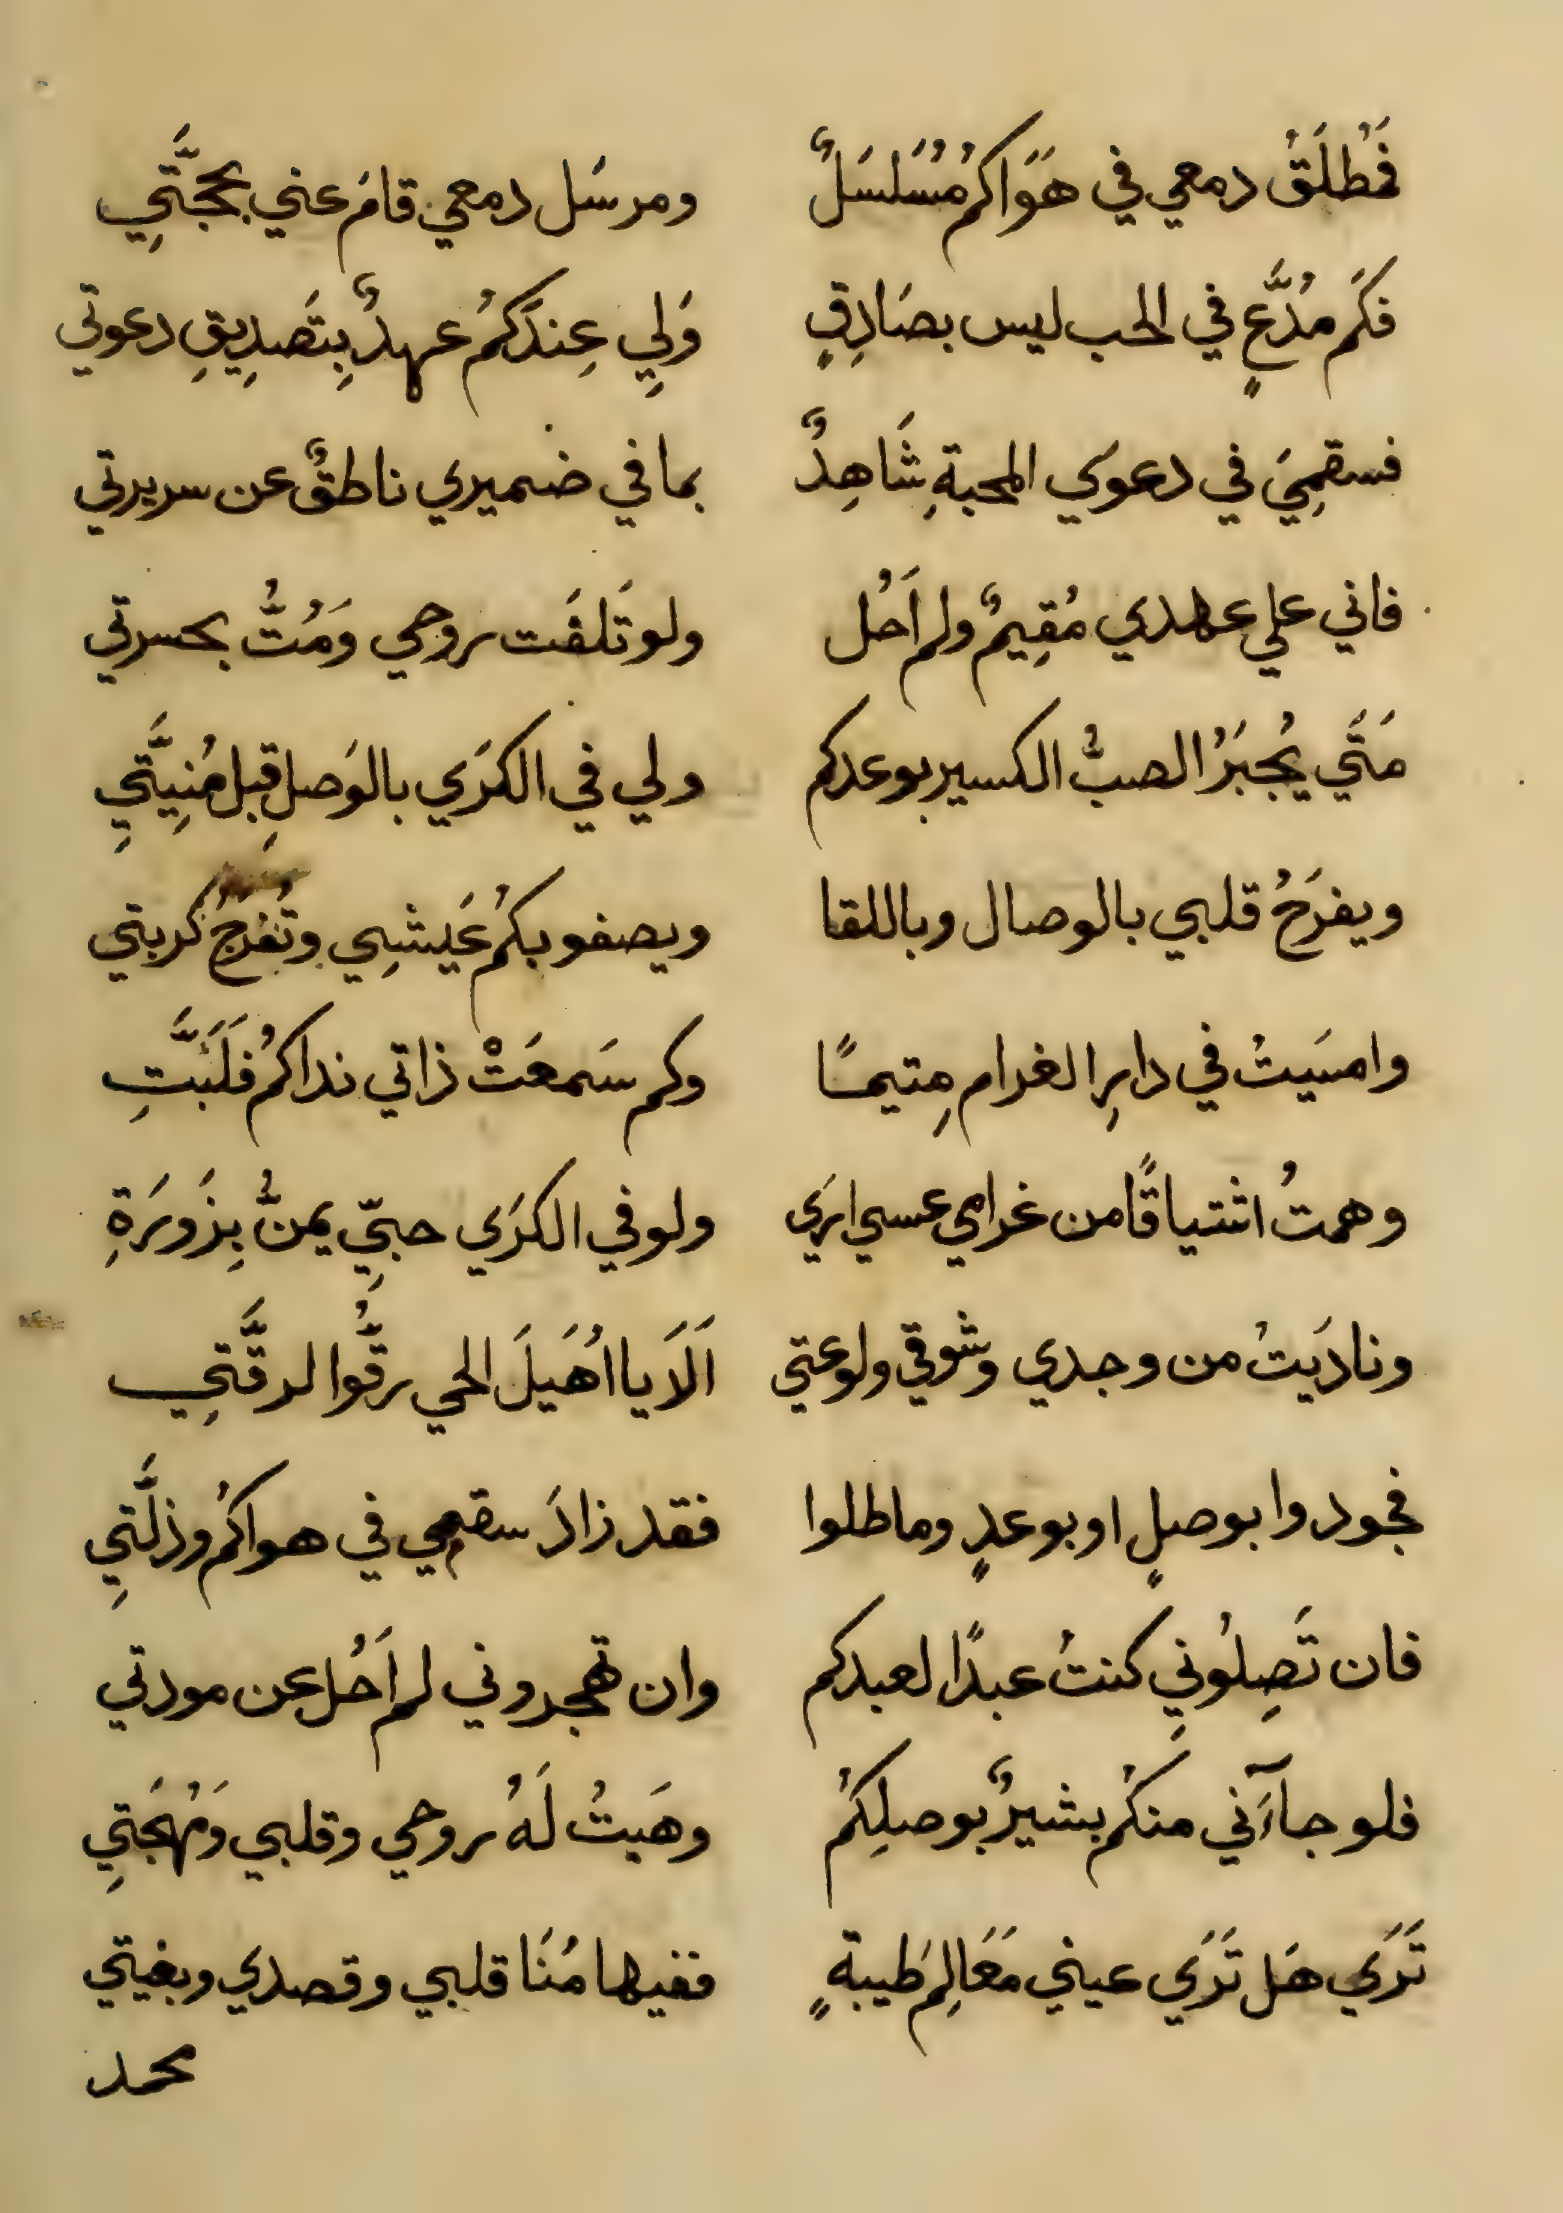 فَمُطلَقُ دمعي في هَوَاكُم مُسَلسَلٌ ومرسَل دمعي قامَ عني بحجَّتِي
فكَم مُدَّعٍ في الحب ليس بصَادِقٍ وَلِي عِندَكُم عهدٌ بِتَصدِيقِ دعوتي
فسقمِيَ في دعوي المحبةِ شَاهِدٌ بما في ضميري ناطقٌ عن سريرتي
فاني علي عهدي مُقِيمٌ ولم اَحُل ولو تَلفَت روحي وَمُتُّ بحسرتي
مَتَي يُجبَرُ الصبُّ الكسير بوعدكم ولي في الكرَي بالوَصلِ قبل مُنِيَّتِي
ويفرَحُ قلبي بالوصال وباللقا ويصفو بكُم عَيشِي وتُفرَجُ كربتي
وامسَيتُ في دارِ الغرام مِتيمًا وكم سَمعَتْ ذاتي نداكُم فَلَبَّتِ
وهمتُ اشتياقًا من غرامي عسي ارَي ولو في الكرَي حبيِّ يمنُّ بِزَورَةِ
ونادَيتُ من وجدي وشوقي ولوعتي اَلَا يا اُهَيلَ الحي رقُّوا لرقَّتِي
فجودوا بوصلٍ او بوعدٍ وماطلوا فقد زادَ سقمي في هواكُم وذلَّتِي
فان تَصِلُونِي كنتُ عبدًا لعبدكم وان تهجروني لم اَحُل عن مودتي
فلو جآءَني منكُم بشيرٌ بوصلِكُم وهَبتُ لَهُ روحي وقلبي وَمُهجَتِي
تَرَي هَل تَرَي عيني مَعَالِمَ طَيبةٍ ففيها مُنَا قلبي وقصدي وبغيتي
محمد